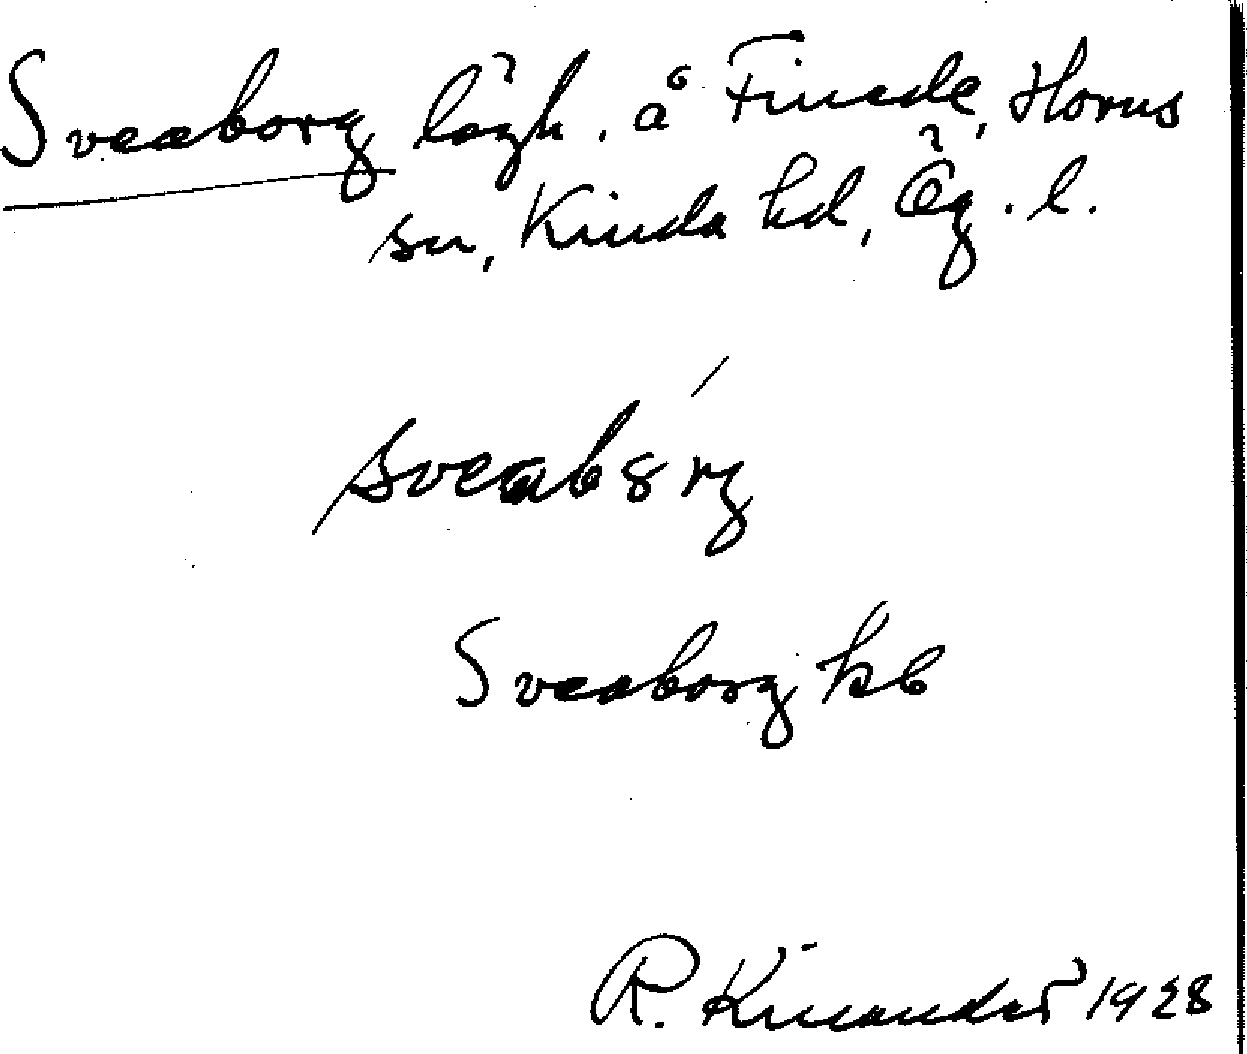 Sveaborg lägh. å Finede, Horns
sn, Kinda hd, Ög. l.
sveabórg
Sveaborg kb
R. Kinander 1928